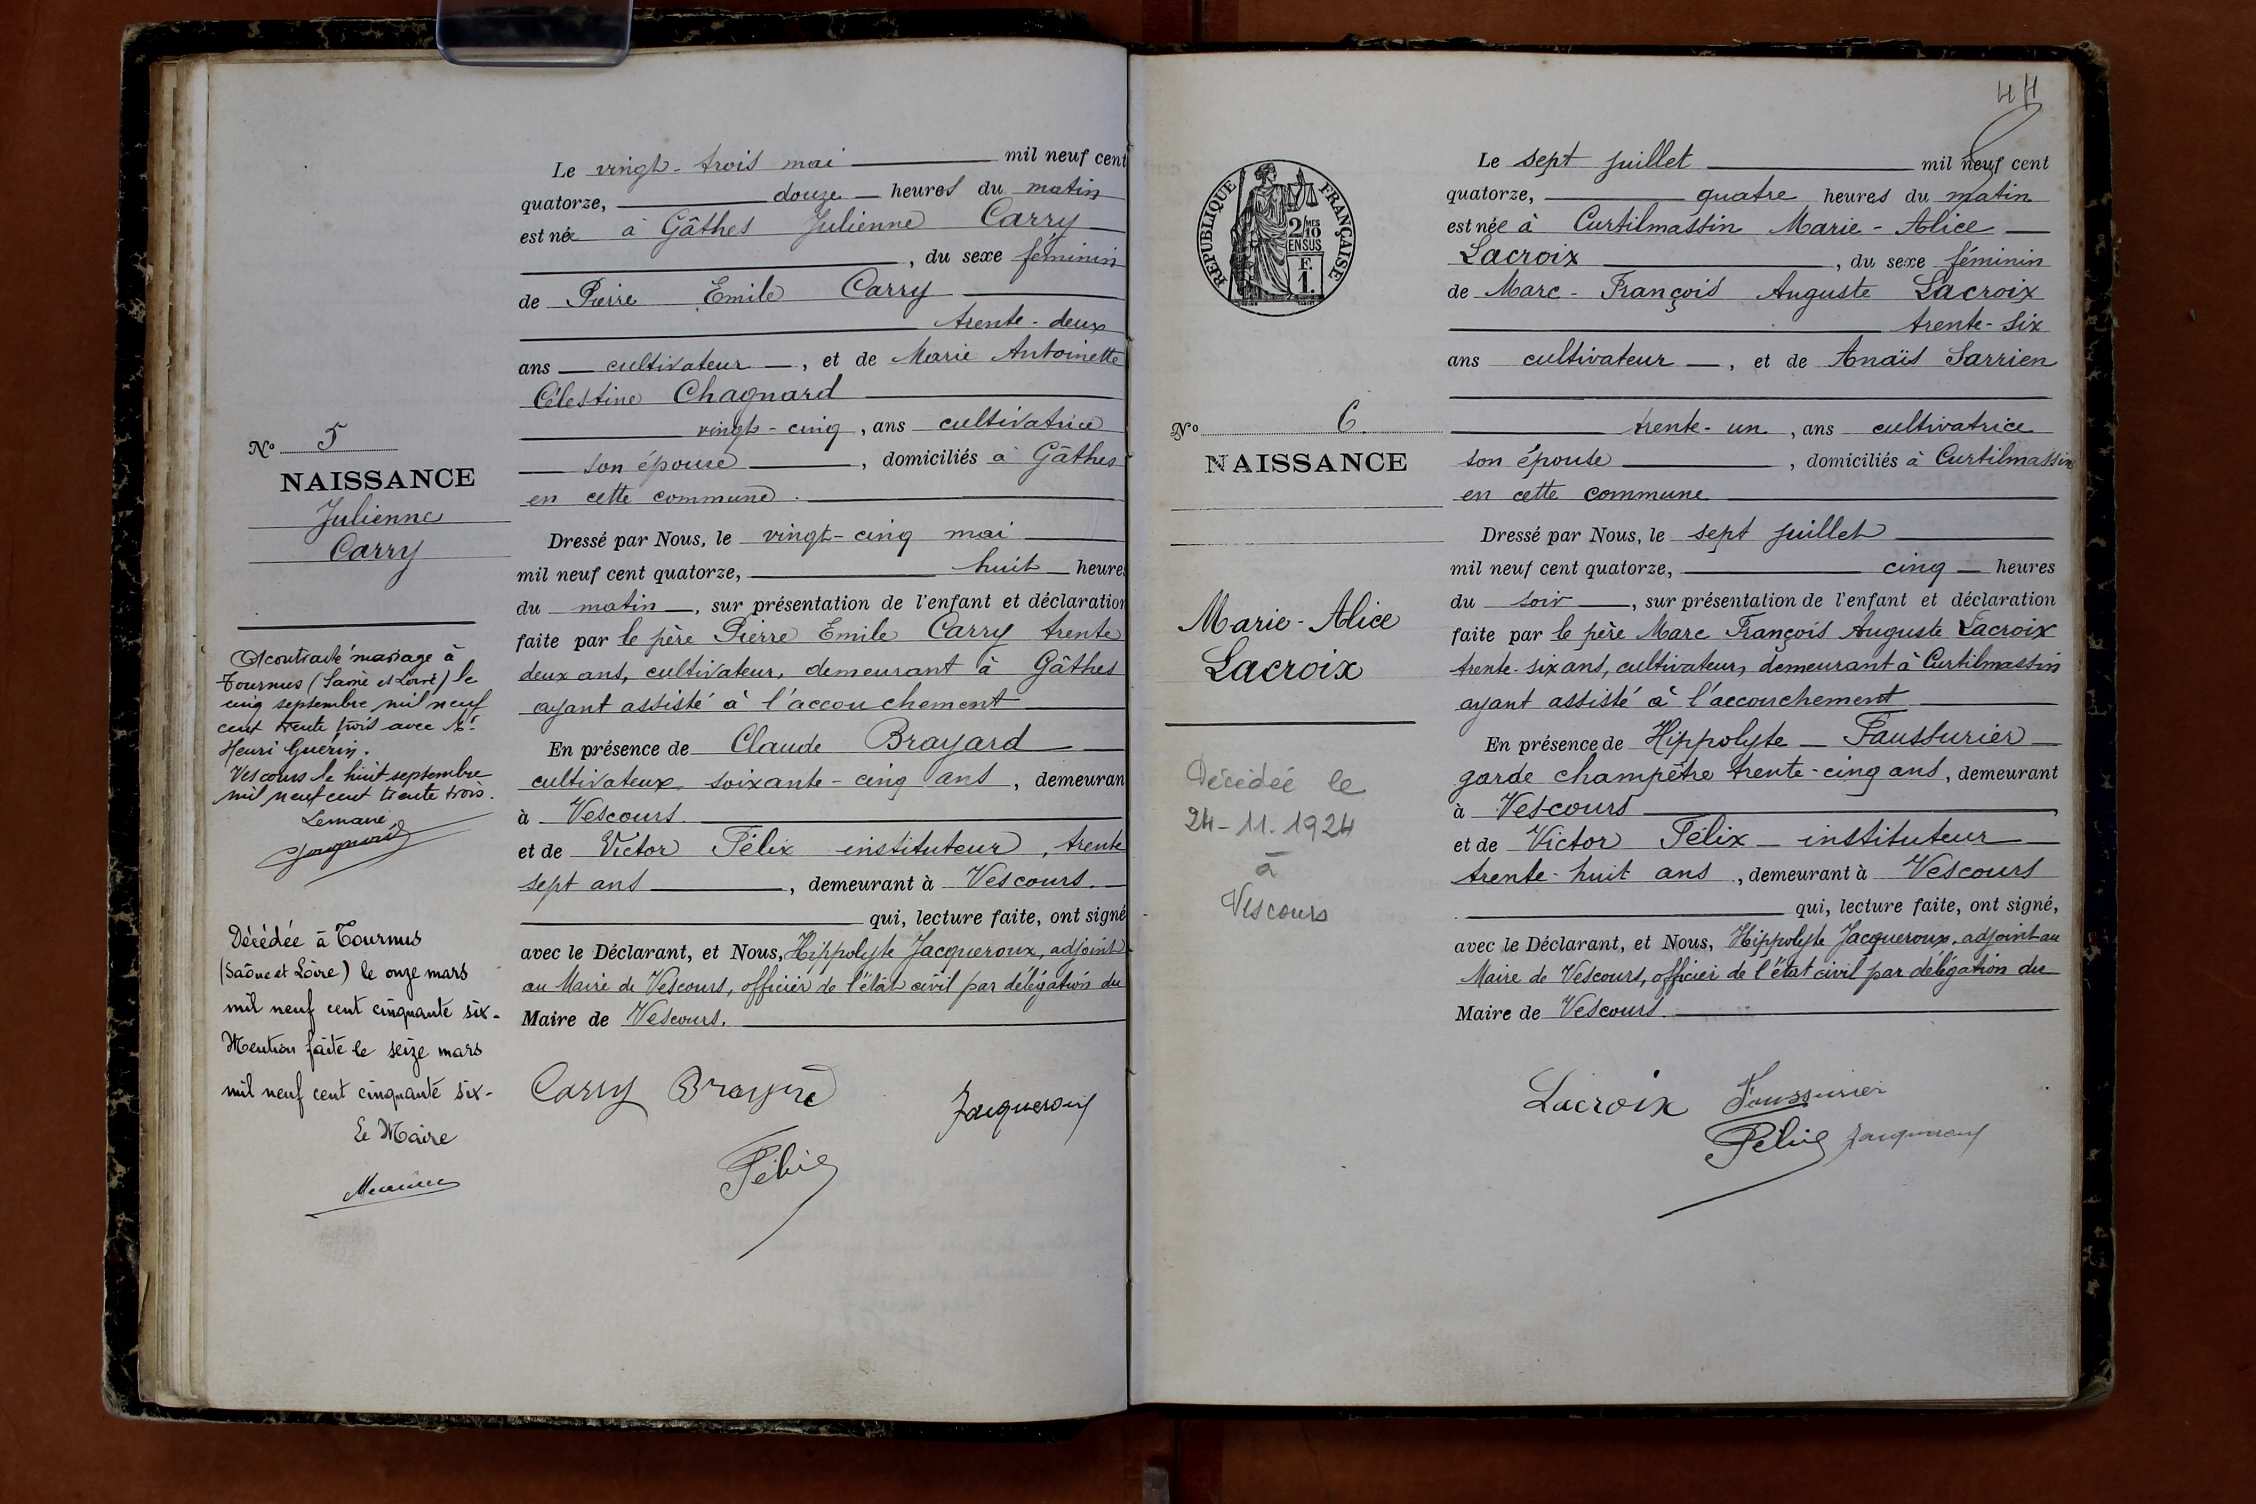 Le vingt-trois mai mil neuf cent
quatorze, douze heures du matin
est née à Gâthes Julienne Carry
, du sexe féminin
de Pierre Emile Carry
trente-deux
ans cultivateur, et de Marie Antoinette
Célestine Chagnard
vingt-cinq, ans cultivatrice
son épouse, domiciliés à Gâthes
en cette commune.
Dressé par Nous, le vingt-cinq mai
mil neuf cent quatorze, huit heures
du matin, sur présentation de l'enfant et déclaration
faite par le père Pierre Emile Carry trente
deux ans, cultivateur, demeurant à Gâthes
ayant assisté à l'accouchement
En présence de Claude Brayard
cultivateur soixante-cinq ans, demeuran
à Vescours
et de Victor Félix instituteur, trente
sept ans, demeurant à Vescours.
qui, lecture faite, ont signé
avec le Déclarant, et Nous, Hippolyte Jacqueroux, adjoint
au Maire de Vescours, officier de l'état civil par délégation du
Maire de Vescours.
Carry Brayard
Jacqueroux
Félix
No 5
NAISSANCE
Julienne
Carry
A contracté mariage à
Tournus (Saône et Loire) le
cinq septembre mil neuf
cent trente trois avec Mr
Henri Guérin.
Vescours le huit septembre
mil neuf cent trente trois.
Le maire
Décédée à Tournus
(Saône et Loire) le onze mars
mil neuf cent cinquante six-
Mention faite le seize mars
mil neuf cent cinquante six-
Le Maire
44
RÉPUBLIQUE FRANÇAISE
2/10 MES
EN SUS
F.
1.
Le sept juillet mil neuf cent
quatorze, quatre heures du matin
est née à Curtilmassin Marie-Alice
Lacroix, du sexe féminin
de Marc-François Auguste Lacroix
trente-six
ans cultivateur, et de Anaïs Sarrien
trente-un, ans cultivatrice
son épouse, domiciliés à Curtilmassin
en cette commune
Dressé par Nous, le sept juillet
mil neuf cent quatorze, cinq heures
du soir, sur présentation de l'enfant et déclaration
faite par le père Marc François Auguste Lacroix
trente-six ans, cultivateur, demeurant à Curtilmassin
ayant assisté à l'accouchement
En présence de Hippolyte Faussurier
garde champêtre trente-cinq ans, demeurant
à Vescours
et de Victor Félix instituteur
trente-huit ans, demeurant à Vescours
qui, lecture faite, ont signé,
avec le Déclarant, et Nous, Hippolyte Jacqueroux, adjoint au
Maire de Vescours, officier de l'état civil par délégation du
Maire de Vescours.
Lacroix Faussurier
Félix Jacqueroux
No 6
NAISSANCE
Marie-Alice
Lacroix
Décédée le
24-11-1924
à
Vescours